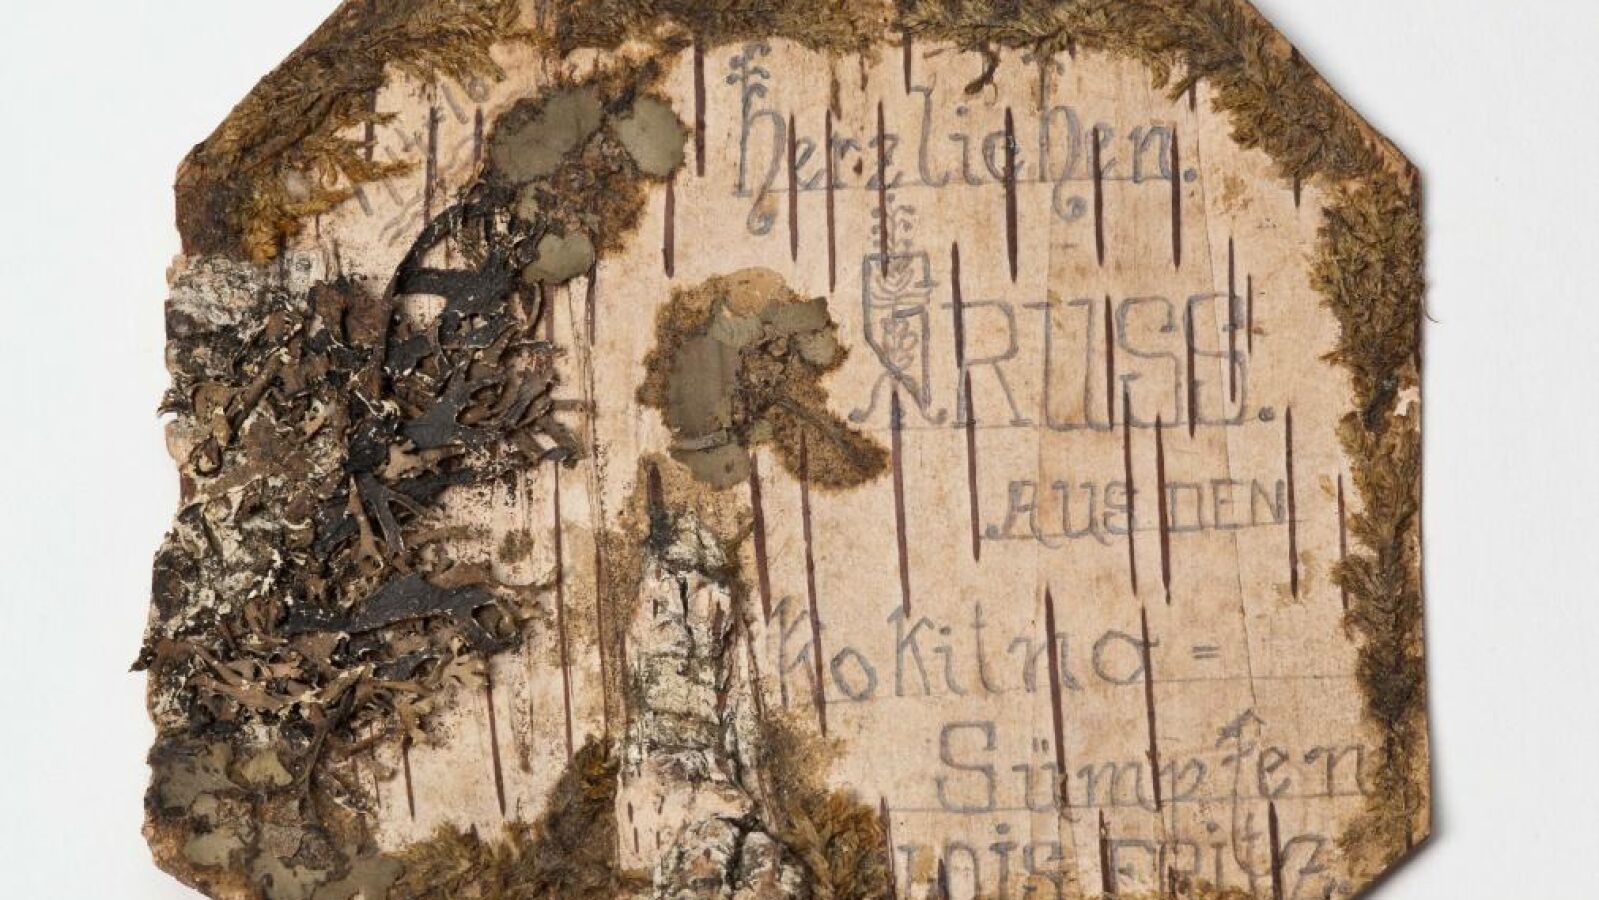 Herzlichen.
KRUSS.
AUS DEN
Kokitna=
Sümpfen
LOIS FRITZ.